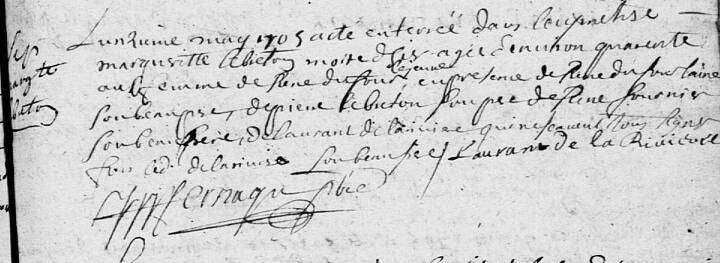 Lunzieme may 1705 a ete enterree dans leglise
margueritte lebreton morte d agee denviron quarente
ans femme de Rene dufour le jeune en presence de Rene dufour laine
son beaupere, de piere lebreton son pere de Rene fournier
son beau frere, de Laurant de lariviere qui ne scavent tous signer
fors led. de lariviere son beau frere Laurant de la Riviere
sep
margritte
lebreton